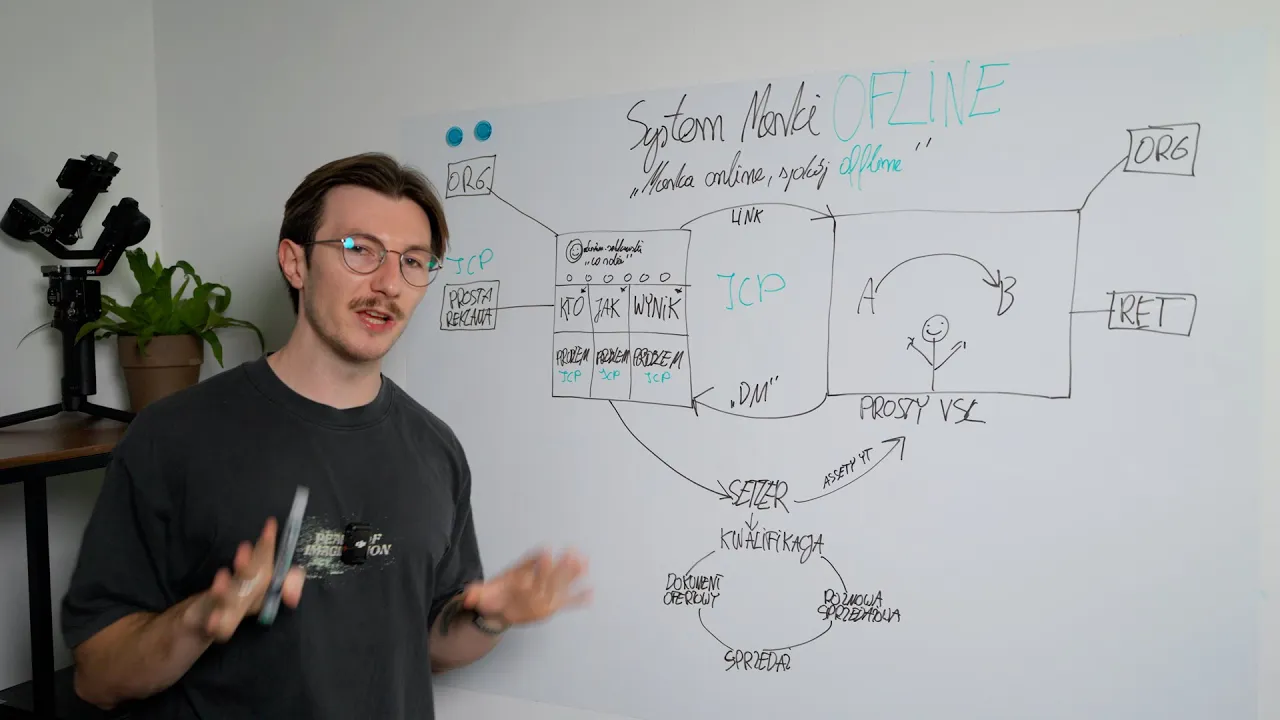 System Marki OFLINE
„Marka online, spokój offline"
ORG
ORG
LINK
JCP
PROSTA
REKLAMA
„co robi"
KTO JAK WYNIK
PROBLEM PROBLEM PROBLEM
JCP JCP JCP
JCP
„DM"
A B
RET
PROSTY VSL
SETTER
ASSETY YT
KWALIFIKACJA
DOKUMENT
OFERTOWY
ROZMOWA
SPRZEDAŻOWA
SPRZEDAŻ
OF